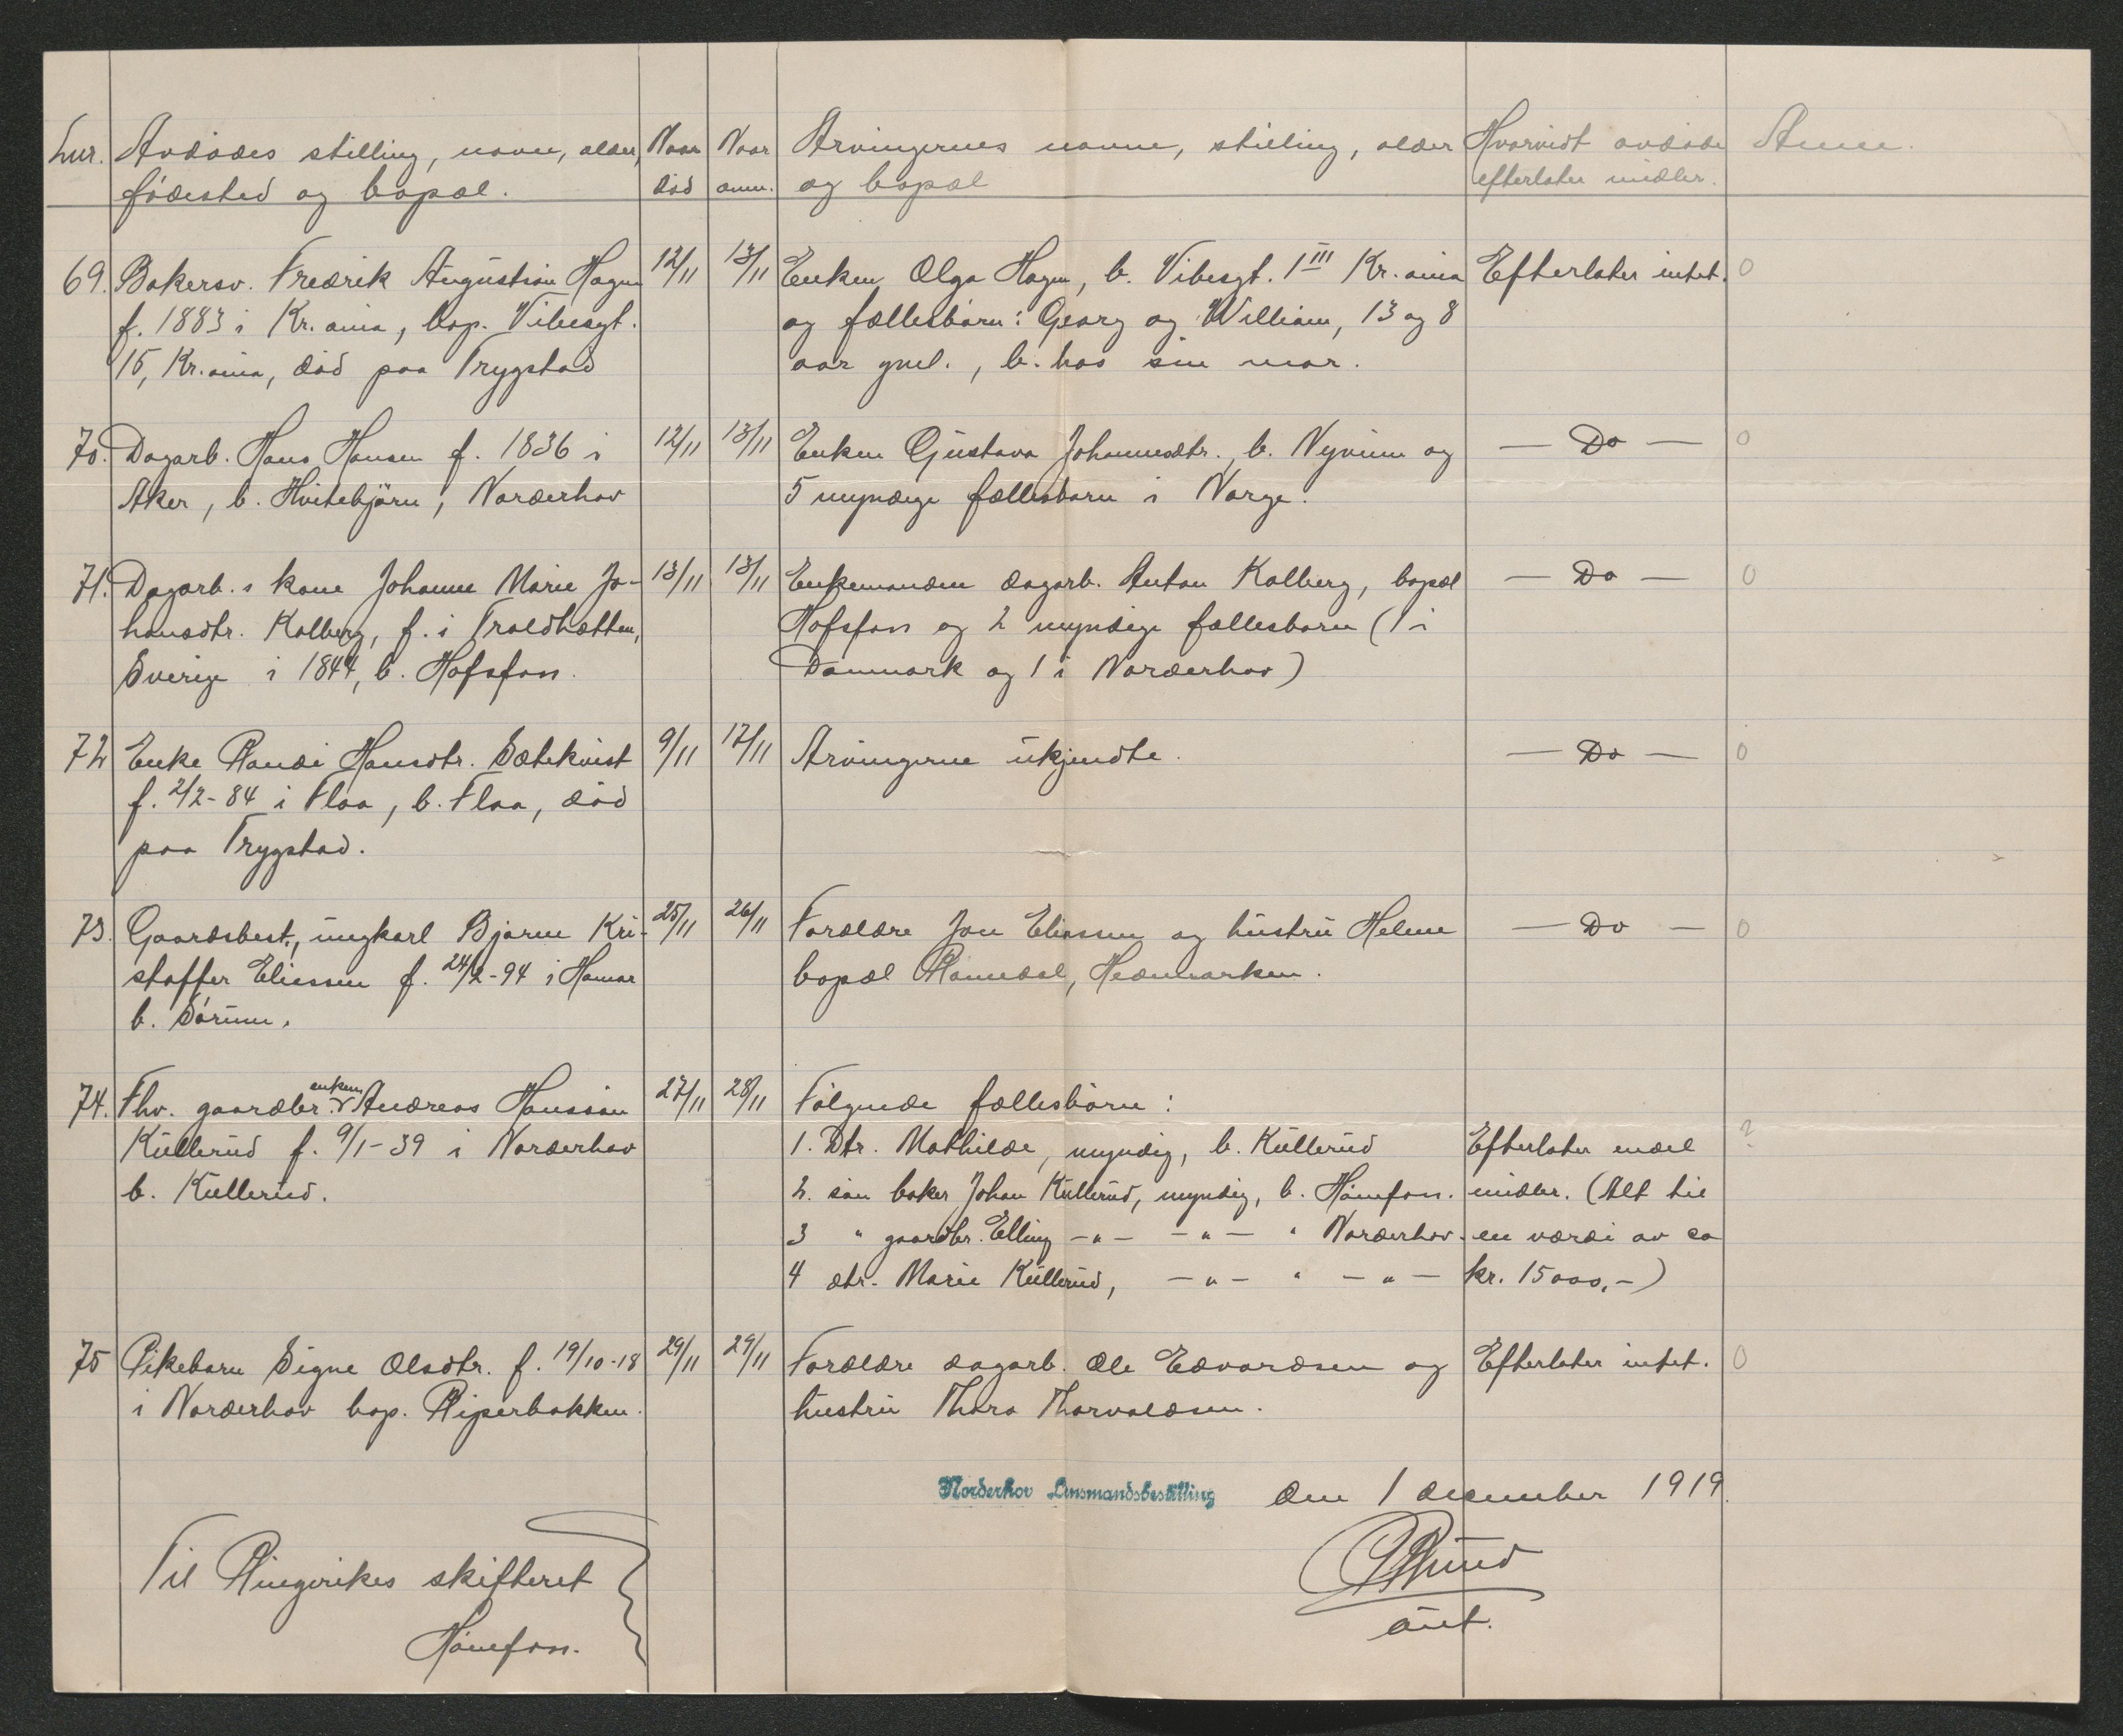 Lnr. Avdødes stilling, navn, alder, Naar Naar Arvingernes navne, stilling, alder Hvorvidt avdøde Anm.
fødested og bopæl. død anm. og bopæl efterlater midler.
69. Bakersv. Fredrik Augustson Hagen 12/11 13/11 Enken Olga Hagen, b. Vibesgt. 1 III Kr.ania Efterlater intet. 0
f. 1883 i Kr.ania, bop. Vibesgt. og fællesbørn: Georg og William, 13 og 8
15, Kr.ania, død paa Trygstad aar gml., b. hos sin mor.
70. Dagarb. Hans Hansen f. 1836 i 12/11 13/11 Enken Gustava Johannesdtr., b. Nyvinn og — Do — 0
Aker, b. Hvitebjörn, Norderhov 5 myndige fællesbarn i Norge.
71. Dagarb.s kone Johanne Marie Jo- 13/11 13/11 Enkemanden dagarb. Anton Kolberg, bopæl — Do — 0
hansdtr. Kolberg, f. i Troldhætten, Hofsfon og 2 myndige fællesbarn (1 i
Sverige i 1844, b. Hofsfon. Danmark og 1 i Norderhov)
72 Enke Randi Hansdtr. Sætekvist 9/11 17/11 Arvingerne ukjendte. — Do — 0
f. 2/2-84 i Flaa, b. Flaa, død
paa Trygstad.
73. Gaardsbest., ungkarl Bjarne Kri- 25/11 26/11 Forældre Jon Eliassen og hustru Helene — Do — 0
stoffer Eliessen f. 24/2-94 i Hamar bopæl Romedal, Hedmarken.
b. Sørum.
74. Fhv. gaardbr. enken v Andreas Hansson 27/11 28/11 Følgende fællesbörn:
Küllerud f. 9/1-39 i Norderhov 1. Dtr. Mathilde, myndig, b. Küllerud Efterlater endel ?
b. Küllerud. 2. søn baker Johan Küllerud, myndig, b. Hønefon. midler. (Alt til
3 " gaardbr. Elling -"- -"- " Norderhov. en værdi av ca
4 dtr. Marie Küllerud, -"- " -"- kr. 15000,-)
75 Pikebarn Signe Olsdtr. f. 19/10-18 29/11 29/11 Forældre dagarb. Ole Edvardsen og Efterlater intet. 0
i Norderhov bop. Riperbakken. hustru Thora Thorvaldsen.
Norderhov Lensmandsbestilling den 1 december 1919.
Til Ringerikes skifteret
Hønefon.
aut.